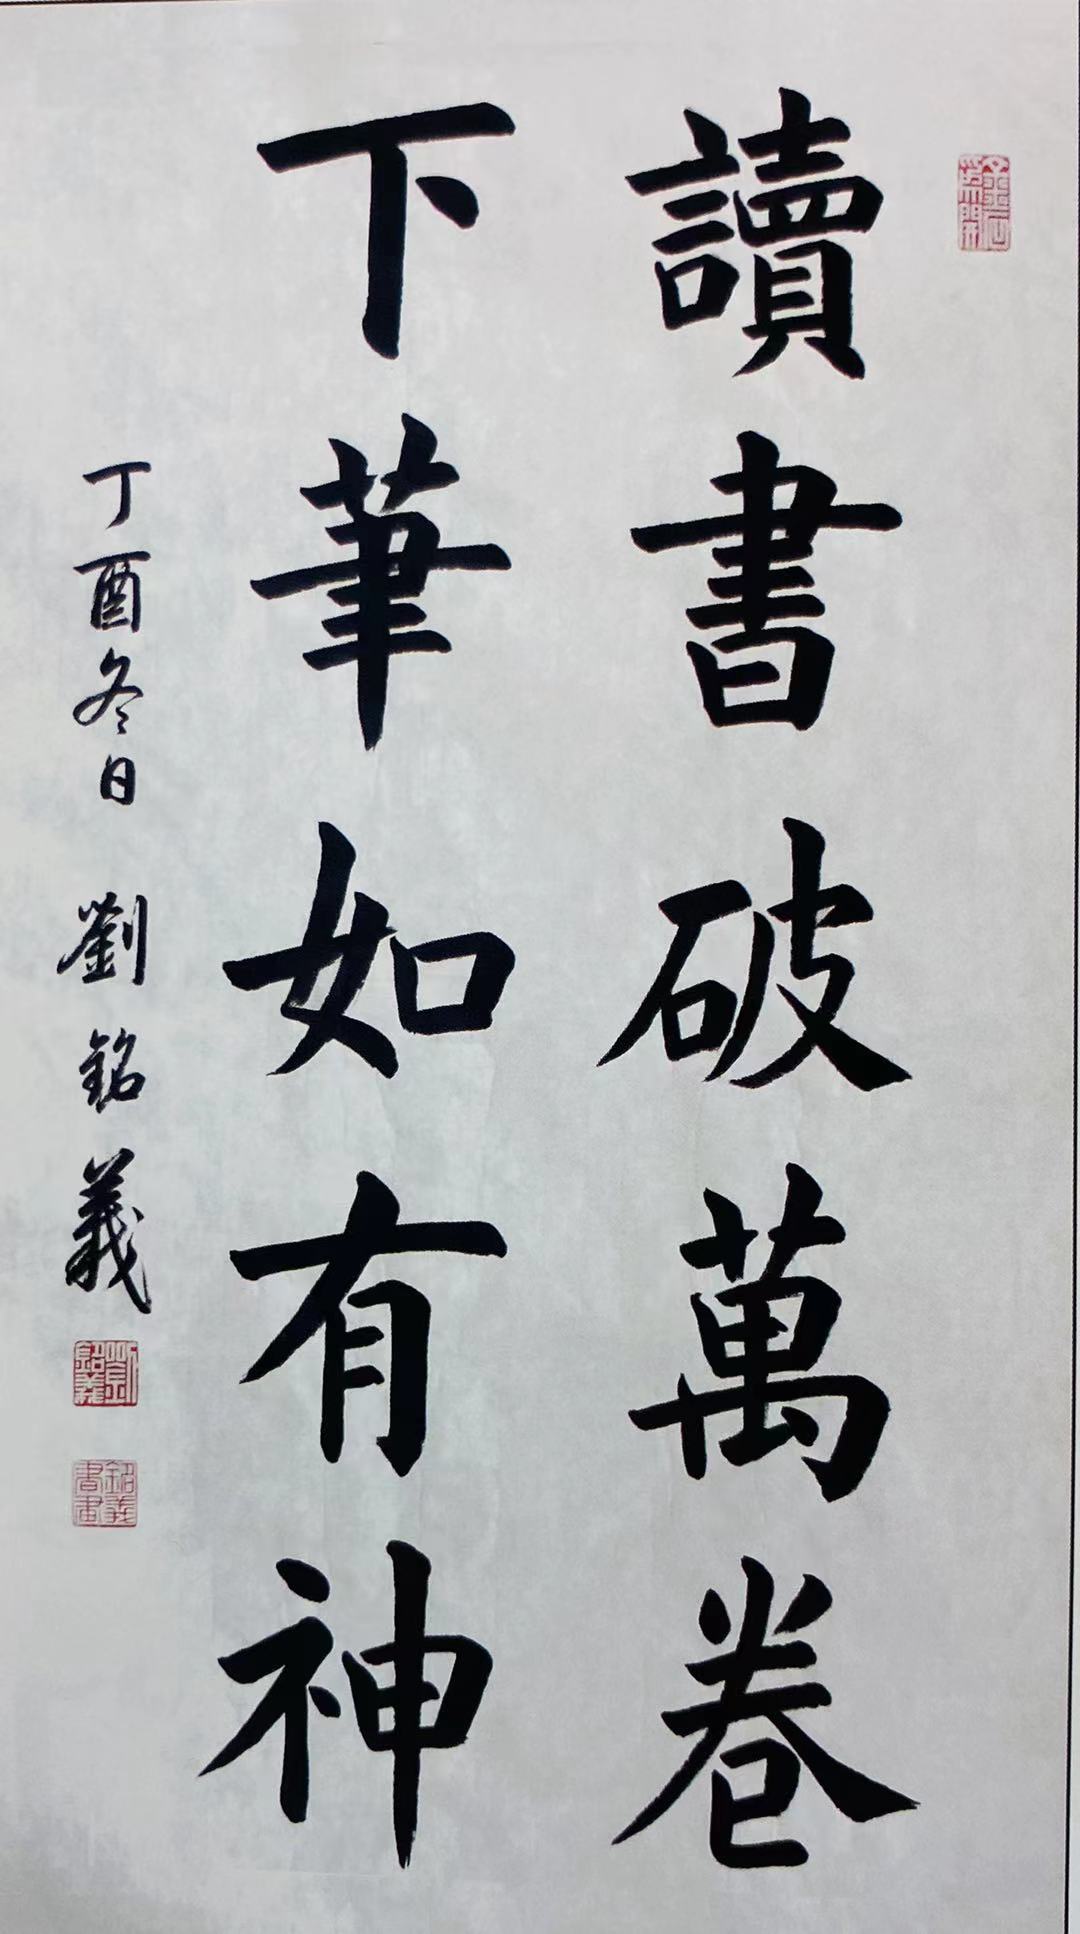 讀書破萬卷
下筆如有神
丁酉冬日 劉銘義
劉銘義
銘義書畫